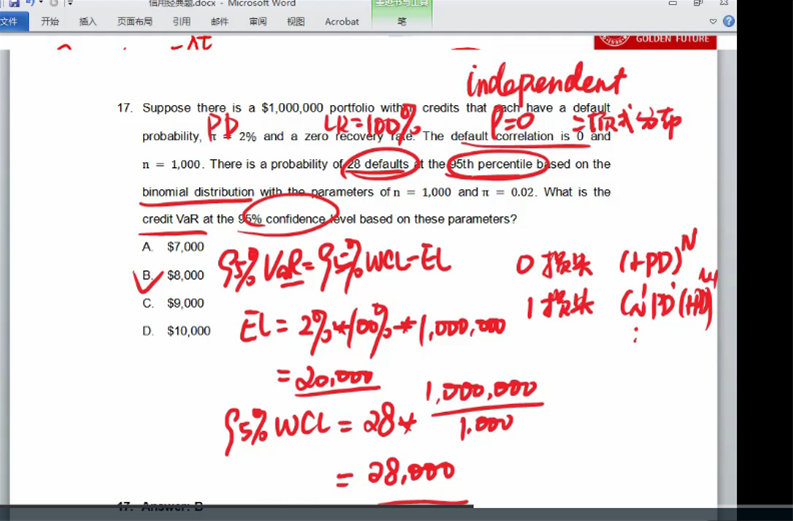 信用经典题.docx - Microsoft Word
文件 开始 插入 页面布局 引用 邮件 审阅 视图 Acrobat 笔
GOLDEN FUTURE
independent
17. Suppose there is a $1,000,000 portfolio with n credits that each have a default
PD LR=100% ρ=0 =项式分布
probability, π = 2% and a zero recovery rate. The default correlation is 0 and
n = 1,000. There is a probability of 28 defaults at the 95th percentile based on the
binomial distribution with the parameters of n = 1,000 and π = 0.02. What is the
credit VaR at the 95% confidence level based on these parameters?
A. $7,000
B. $8,000
C. $9,000
D. $10,000
95% VaR = 95% WCL - EL
EL = 2% * 100% * 1,000,000
= 20,000
95% WCL = 28 * 1,000,000
1,000
= 28,000
0 损失 (1-PD)^N
1 损失 C_N^1 PD^1 (1-PD)^N-1
⋮
17. Answer: B